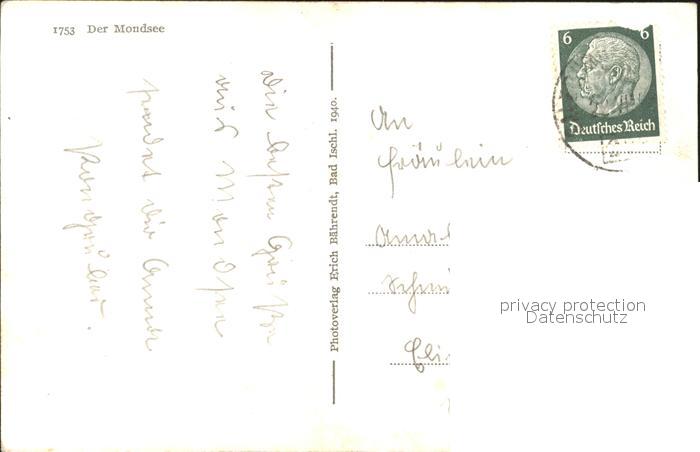 1753 Der Mondsee
Die besten Grüße
aus Mondsee
sendet die Anna
Photoverlag Erich Bährendt, Bad Ischl. 1940.
6 6
Deutsches Reich
An
Fräulein
privacy protection
Datenschutz